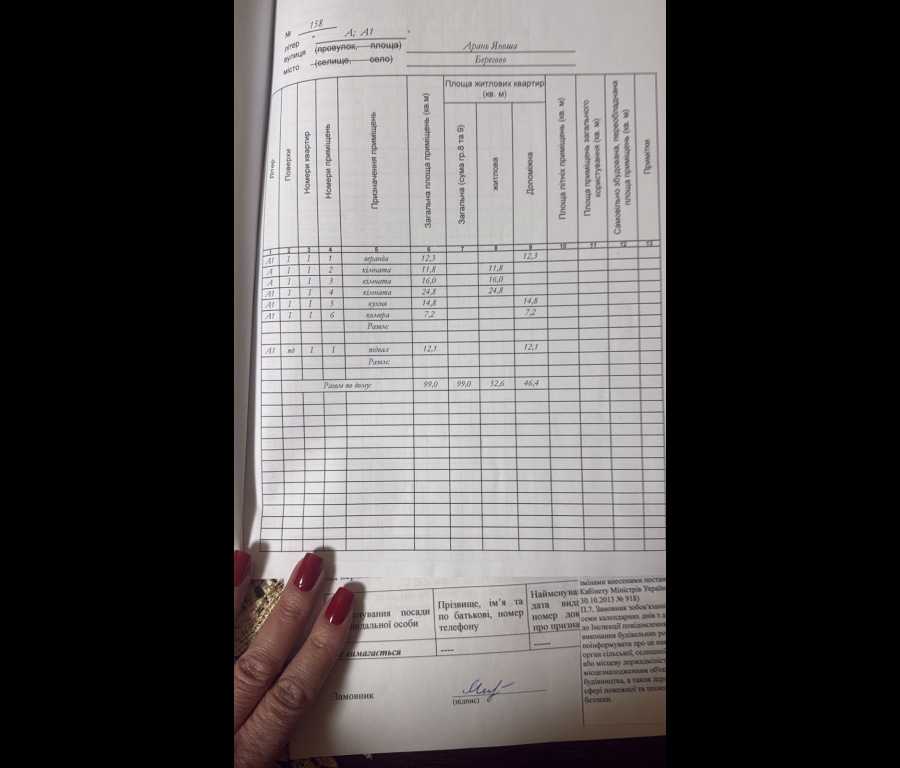 № 158
літер " А; А1 "
вулиця (провулок, площа) Арань Яноша
місто (селище, село) Берегово
Літер
Поверхи
Номери квартир
Номери приміщень
Призначення приміщень
Загальна площа приміщень (кв.м)
Площа житлових квартир (кв. м)
Загальна (сума гр.8 та 9)
житлова
Допоміжна
Площа літніх приміщень (кв. м)
Площа приміщень загального користування (кв. м)
Самовільно збудована, переобладнана площа приміщень (кв. м)
Примітки
1 2 3 4 5 6 7 8 9 10 11 12 13
А1 1 1 1 веранда 12,3 12,3
А 1 1 2 кімната 11,8 11,8
А 1 1 3 кімната 16,0 16,0
А1 1 1 4 кімната 24,8 24,8
А1 1 1 5 кухня 14,8 14,8
А1 1 1 6 комора 7,2 7,2
Разом:
А1 пд 1 1 підвал 12,1 12,1
Разом:
Разом по дому: 99,0 99,0 52,6 46,4
нування посади
відальної особи
Прізвище, ім'я та
по батькові, номер
телефону
Найменува
дата вида
номер док
про призна
е вимагається ---- -----
Замовник
(підпис)
змінами внесеними постан
Кабінету Міністрів Україн
30.10.2013 № 918)
П.7. Замовник зобов'язани
семи календарних днів з д
до Інспекції повідомлення
виконання будівельних ро
поінформувати про це вик
орган сільської, селищної
або місцеву держадмініст
місцезнаходженням об'єк
будівництва, а також дер
сфері пожежної та техно
безпеки.